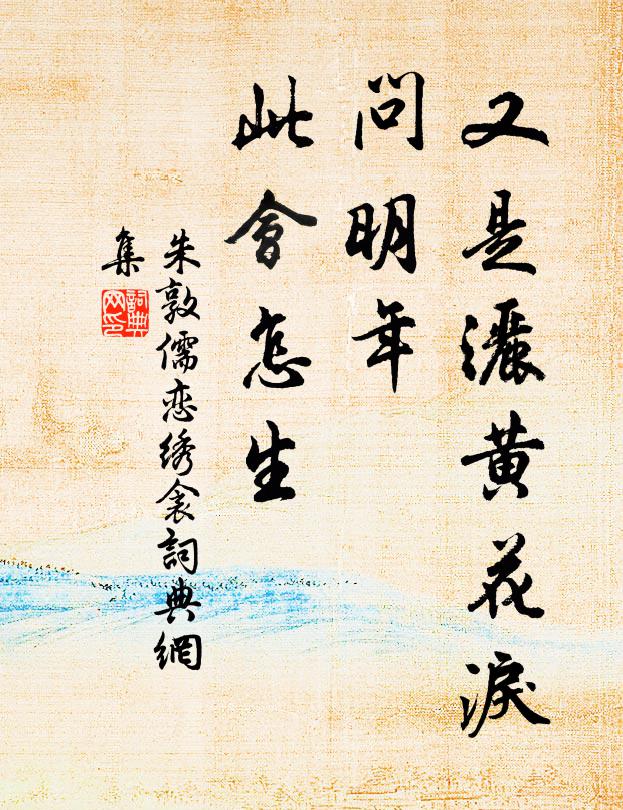 又是灑黄花淚
問明年
此會怎生
朱敦儒恋绣衾詞典網
集
詞典
网印